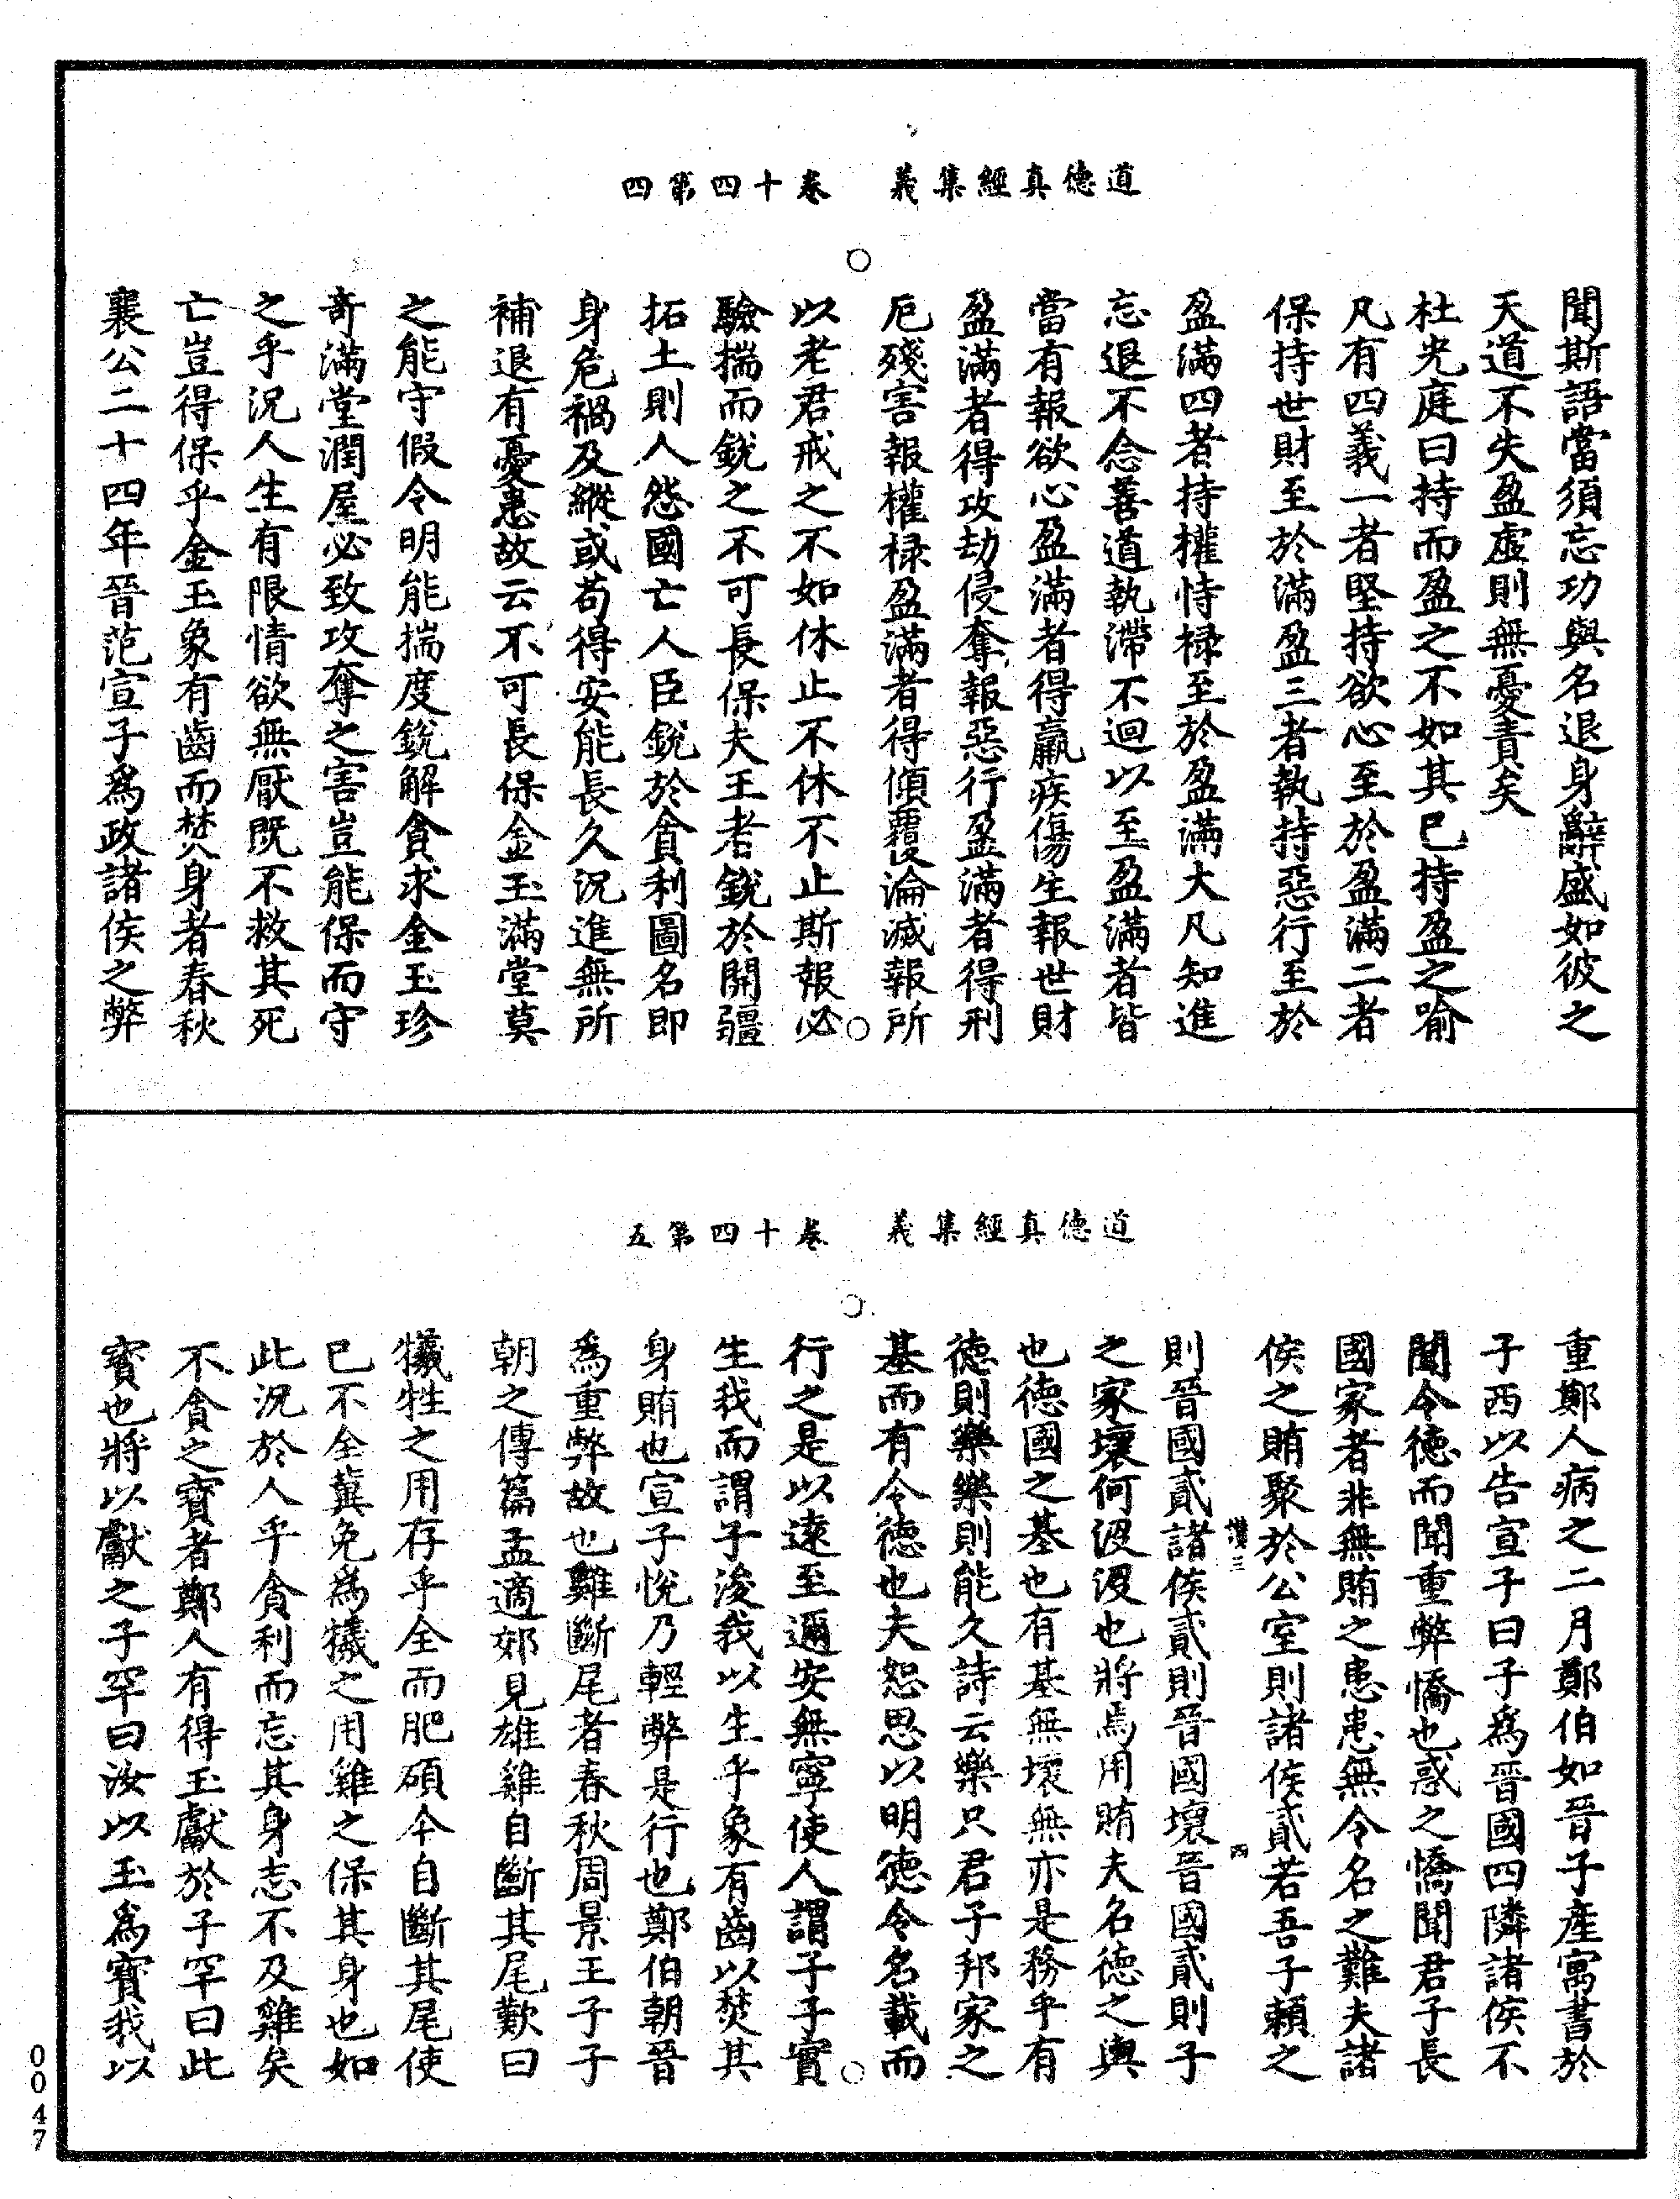 道德真經集義　卷十四第四
聞斯語當須忘功與名退身辭盛如彼之
天道不失盈虛則無憂責矣
杜光庭曰持而盈之不如其已持盈之喻
凡有四義一者堅持欲心至於盈滿二者
保持世財至於滿盈三者執持惡行至於
盈滿四者持權恃祿至於盈盈滿大凡知進
忘退不念善道執滯不迴以至盈滿者皆
當有報欲心盈滿者得羸疾傷生報世財
盈滿者得攻劫侵奪報惡行盈滿者得刑
厄殘害報權祿盈滿者得傾覆淪滅報所
以老君戒之不如休止不休不止斯報必
驗揣而銳之不可長保夫王者銳於開疆
拓土則人怨國亡人臣銳於貪利圖名即
身危禍及縱或苟得安能長久況進無所
補退有憂患故云不可長保金玉滿堂莫
之能守假令明能揣度銳解貪求金玉珍
奇滿堂潤屋必致攻奪之害豈能保而守
之乎況人生有限情欲無厭既不救其死
亡豈得保乎金玉象有齒而焚身者春秋
襄公二十四年晉范宣子為政諸侯之弊
道德真經集義　卷十四第五
重鄭人病之二月鄭伯如晉子產寓書於
子西以告宣子曰子為晉國四隣諸侯不
聞令德而聞重弊憍也惑之憍聞君子長
國家者非無賄之患患無令名之難夫諸
侯之賄聚於公室則諸侯貳若吾子賴之
讚三　四
則晉國貳諸侯貳則晉國壞晉國貳則子
之家壞何沒沒也將焉用賄夫名德之輿
也德國之基也有基無壞無亦是務乎有
德則樂樂則能久詩云樂只君子邦家之
基而有令德也夫恕思以明德令名載而
行之是以遠至邇安無寧使人謂子子實
生我而謂子浚我以生乎象有齒以焚其
身賄也宣子悅乃輕弊是行也鄭伯朝晉
為重弊故也雞斷尾者春秋周景王子子
朝之傳篇孟適郊見雄雞自斷其尾歎曰
犧牲之用存乎全而肥碩今自斷其尾使
已不全冀免為犧之用雞之保其身也如
此況於人乎貪利而忘其身志不及雞矣
不貪之寶者鄭人有得玉獻於子罕曰此
寶也將以獻之子罕曰汝以玉為寶我以
0047